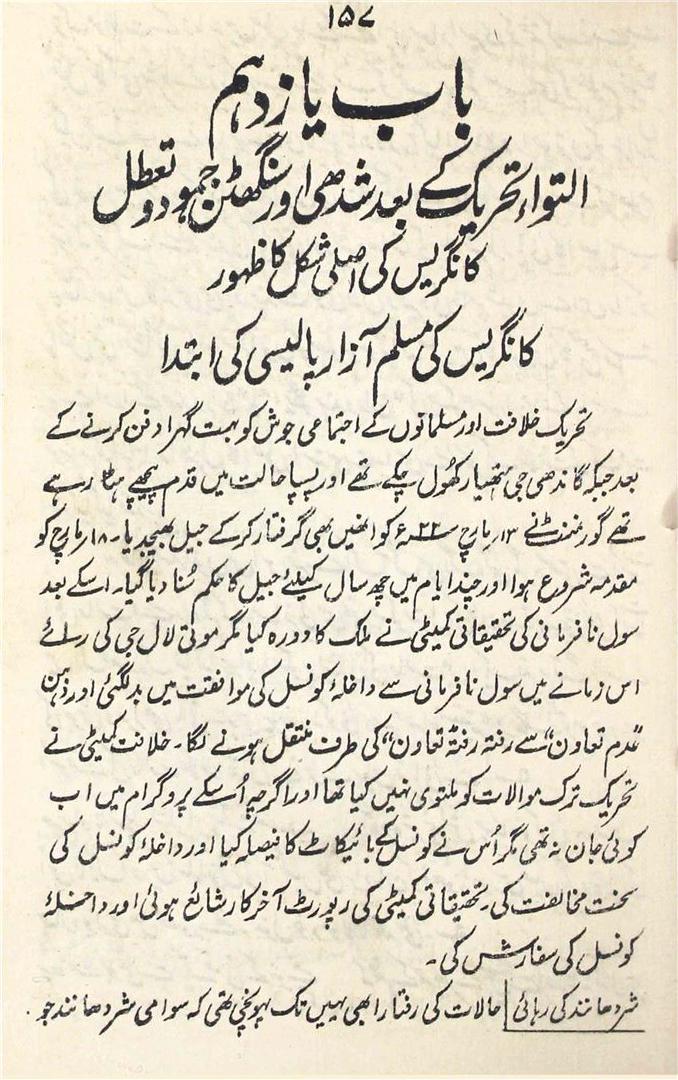 ۱۵۷
باب یازدہم
التواء تحریک کے بعد شدھی اور سنگھٹن جمود و تعطل
کانگریس کی اصلی شکل کا ظہور
کانگریس کی مسلم آزار پالیسی کی ابتدا
تحریک خلافت اور مسلمانوں کے اجتماعی جوش کو بہت گہرا دفن کرنے کے
بعد جبکہ گاندھی جی ہتھیار کھول چکے تھے اور پسپا حالت میں قدم پیچھے ہٹا رہے
تھے گورنمنٹ نے ۱۳ مارچ ۲۲ء کو انھیں بھی گرفتار کرکے جیل بھیجدیا۔ ۱۸ مارچ کو
مقدمہ شروع ہوا اور چند ایام میں چھ سال کیلئے جیل کا حکم سُنا دیا گیا۔ اسکے بعد
سول نافرمانی کی تحقیقاتی کمیٹی نے ملک کا دورہ کیا مگر موتی لال جی کی رائے
اس زمانے میں سول نافرمانی سے داخلۂ کونسل کی موافقت میں بدلگئی اور ذہن
”عدم تعاون“ سے رفتہ رفتہ ”تعاون“ کی طرف منتقل ہونے لگا۔ خلافت کمیٹی نے
تحریک ترک موالات کو ملتوی نہیں کیا تھا اور اگرچہ اُسکے پروگرام میں اب
کوئی جان نہ تھی مگر اُس نے کونسل کے بائیکاٹ کا فیصلہ کیا اور داخلۂ کونسل کی
سخت مخالفت کی۔ تحقیقاتی کمیٹی کی رپورٹ آخرکار شائع ہوئی اور داخلۂ
کونسل کی سفارش کی۔
شردھانند کی رہائی حالات کی رفتار ابھی یہیں تک پہونچی تھی کہ سوامی شردھانند جو